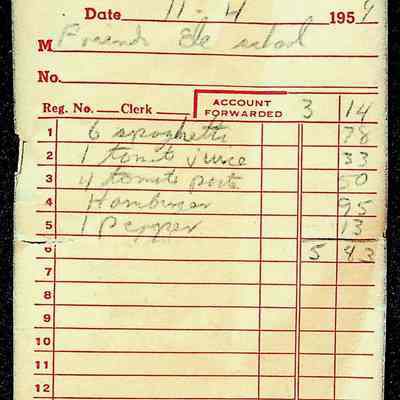 Date 11-4 1959
M Ele school
No.
Reg. No. Clerk ACCOUNT FORWARDED 3 14
1 6 spaghetti 78
2 1 tomato juice 33
3 4 tomato paste 50
4 Hamburger 95
5 1 pepper 13
6 5 83
7
8
9
10
11
12